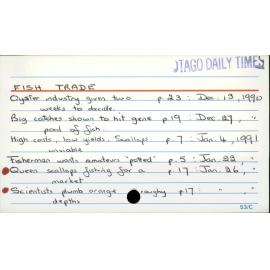 OTAGO DAILY TIMES
FISH TRADE
Oyster industry given two p.23 : Dec. 13, 1990
weeks to decide.
Big catches shown to hit gene p19 : Dec. 27, "
pool of fish.
High costs, low yields. Scallops p. 7 : Jan. 4, 1991
unviable
Fisherman wants amateurs "potted" p. 5 : Jan. 22, "
Queen scallops fishing for a p. 17 : Jan. 26, "
market
Scientists plumb orange roughy p17 : " "
depths
53/C